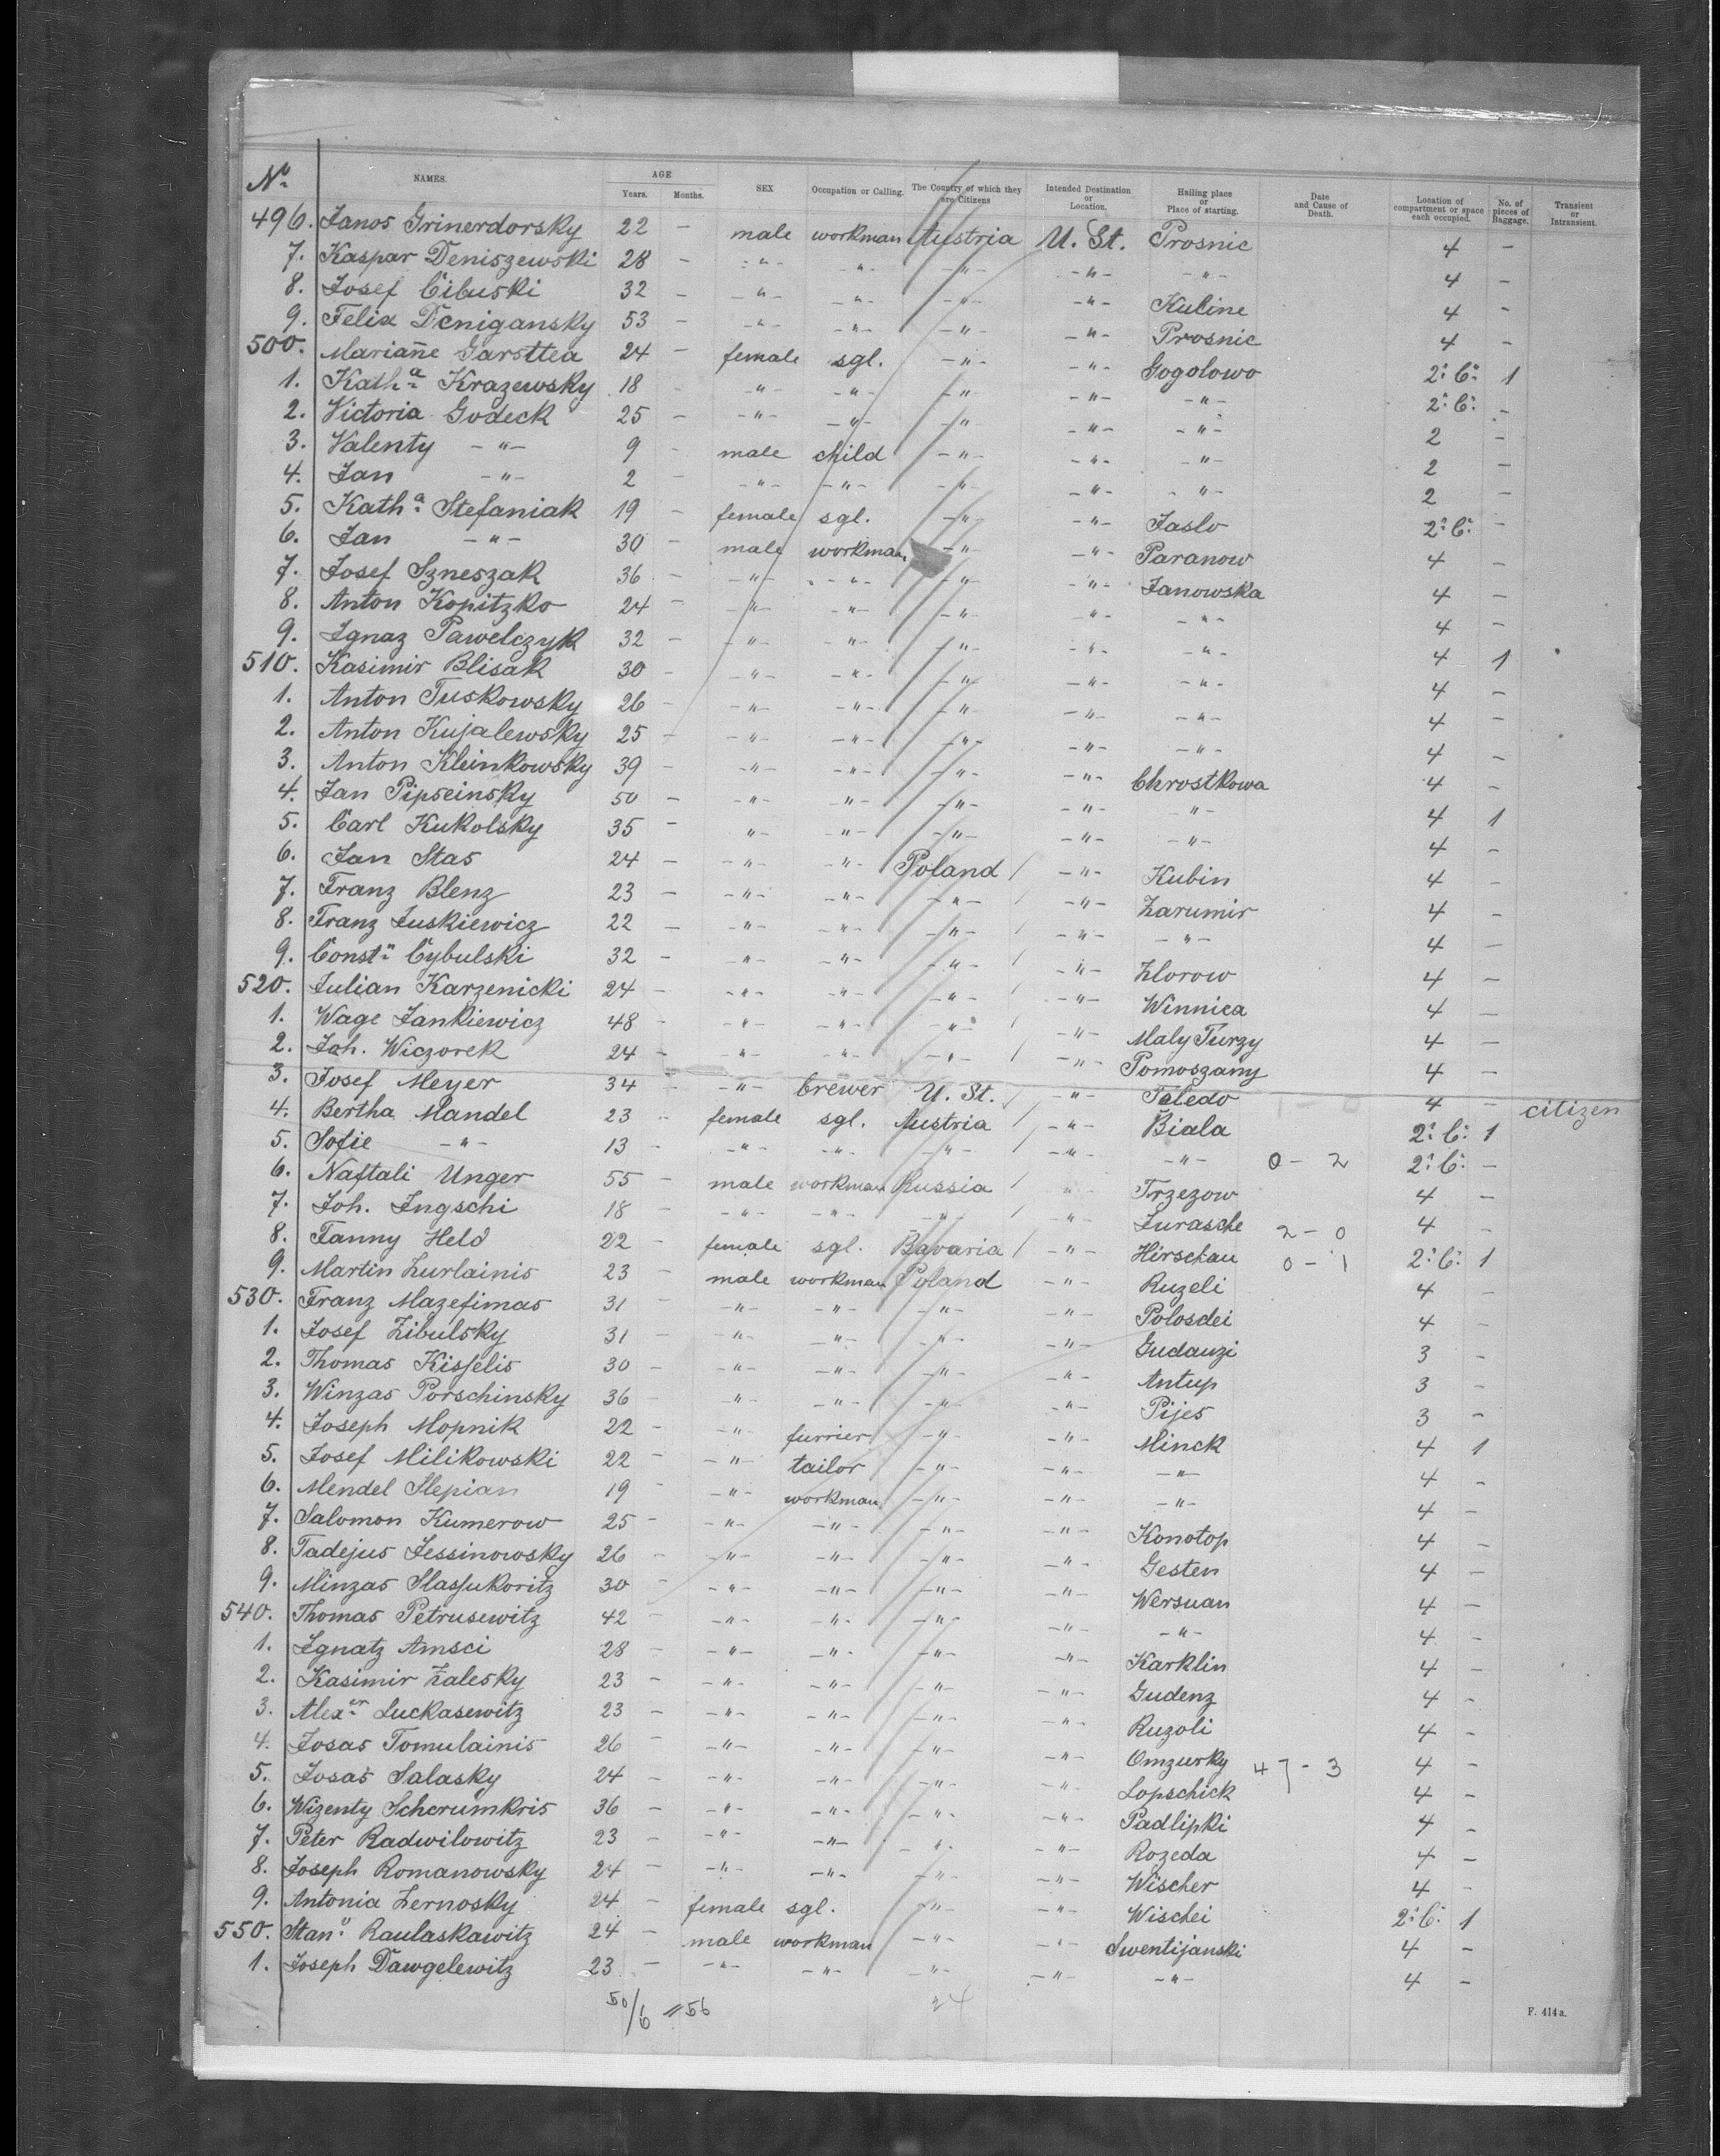 No. NAMES. AGE Years. Months. SEX Occupation or Calling. The Country of which they are Citizens Intended Destination or Location. Hailing place or Place of starting. Date and Cause of Death. Location of compartment or space each occupied. No. of pieces of Baggage. Transient or Intransient.
496. Janos Grinerdorsky 22 - male workman Austria U. St. Prosnic 4 -
7. Kaspar Deniszewski 28 - -"- -"- -"- -"- -"- 4 -
8. Josef Cibuski 32 - -"- -"- -"- -"- Kuline 4 -
9. Felix Denigansky 53 - -"- -"- -"- -"- Prosnic 4 -
500. Mariañe Garsttea 24 - female sgl. -"- -"- Gogolowo 2: C: 1
1. Kath:a Krazewsky 18 - -"- -"- -"- -"- -"- 2: C: -
2. Victoria Godeck 25 - -"- -"- -"- -"- -"- 2 -
3. Valenty -"- 9 - male child -"- -"- -"- 2 -
4. Jan -"- 2 - -"- -"- -"- -"- -"- 2 -
5. Kath:a Stefaniak 19 - female sgl. -"- -"- Jaslo 2: C: -
6. Jan -"- 30 - male workman -"- -"- Paranow 4 -
7. Josef Szneszak 36 - -"- -"- -"- -"- Janowska 4 -
8. Anton Kopitzko 24 - -"- -"- -"- -"- -"- 4 -
9. Ignaz Pawelczyk 32 - -"- -"- -"- -"- -"- 4 1
510. Kasimir Blisak 30 - -"- -"- -"- -"- -"- 4 -
1. Anton Tuskowsky 26 - -"- -"- -"- -"- -"- 4 -
2. Anton Kujalewsky 25 - -"- -"- -"- -"- -"- 4 -
3. Anton Kleinkowsky 39 - -"- -"- -"- -"- Chrostkowa 4 -
4. Jan Pipseinsky 50 - -"- -"- -"- -"- -"- 4 1
5. Carl Kukolsky 35 - -"- -"- -"- -"- -"- 4 -
6. Jan Stas 24 - -"- -"- Poland -"- Kubin 4 -
7. Franz Blenz 23 - -"- -"- -"- -"- Zarumir 4 -
8. Franz Juskiewicz 22 - -"- -"- -"- -"- -"- 4 -
9. Const:n Cybulski 32 - -"- -"- -"- -"- Zlorow 4 -
520. Julian Karzenicki 24 - -"- -"- -"- -"- Winnica 4 -
1. Wage Jankiewicz 48 - -"- -"- -"- -"- Maly Turzy 4 -
2. Joh. Wiczorek 24 - -"- -"- -"- -"- Pomoszany 4 -
3. Josef Meyer 34 - -"- brewer U. St. -"- Toledo 4 - citizen
4. Bertha Mandel 23 - female sgl. Austria -"- Biala 2: C: 1
5. Sofie -"- 13 - -"- -"- -"- -"- -"- 0 - 2 2: C: -
6. Naftali Unger 55 - male workman Russia -"- Trzezow 4 -
7. Joh. Ingschi 18 - -"- -"- -"- -"- Jurasche 2 - 0 4 -
8. Fanny Held 22 - female sgl. Bavaria -"- Hirschau 0 - 1 2: C: 1
9. Martin Zurlainis 23 - male workman Poland -"- Ruzeli 4 -
530. Franz Mazefimas 31 - -"- -"- -"- -"- Polosdei 4 -
1. Josef Zibulsky 31 - -"- -"- -"- -"- Gudauzi 3 -
2. Thomas Kisselis 30 - -"- -"- -"- -"- Antup 3 -
3. Winzas Porschinsky 36 - -"- -"- -"- -"- Pijes 3 -
4. Joseph Mopnik 22 - -"- furrier -"- -"- Minck 4 1
5. Josef Milikowski 22 - -"- tailor -"- -"- -"- 4 -
6. Mendel Slepian 19 - -"- workman -"- -"- -"- 4 -
7. Salomon Kumerow 25 - -"- -"- -"- -"- Konotop 4 -
8. Tadejus Jessinowsky 26 - -"- -"- -"- -"- Gesten 4 -
9. Minzas Slassukoritz 30 - -"- -"- -"- -"- Wersuan 4 -
540. Thomas Petrusewitz 42 - -"- -"- -"- -"- -"- 4 -
1. Ignatz Amsci 28 - -"- -"- -"- -"- Karklin 4 -
2. Kasimir Zalesky 23 - -"- -"- -"- -"- Gudenz 4 -
3. Alex:er Luckasewitz 23 - -"- -"- -"- -"- Ruzoli 4 -
4. Josas Tomulainis 26 - -"- -"- -"- -"- Omzurky 4 -
5. Josas Salasky 24 - -"- -"- -"- -"- Lopschick 47 - 3 4 -
6. Wizenty Scherumkris 36 - -"- -"- -"- -"- Padlipki 4 -
7. Peter Radwilowitz 23 - -"- -"- -"- -"- Rozeda 4 -
8. Joseph Romanowsky 24 - -"- -"- -"- -"- Wischer 4 -
9. Antonia Zernosky 24 - female sgl. -"- -"- Wischei 2: C: 1
550. Stan: Raulaskawitz 24 - male workman -"- -"- Swentijanski 4 -
1. Joseph Dawgelewitz 23 - -"- -"- -"- -"- -"- 4 -
50/6 = 56 24
F. 414a.